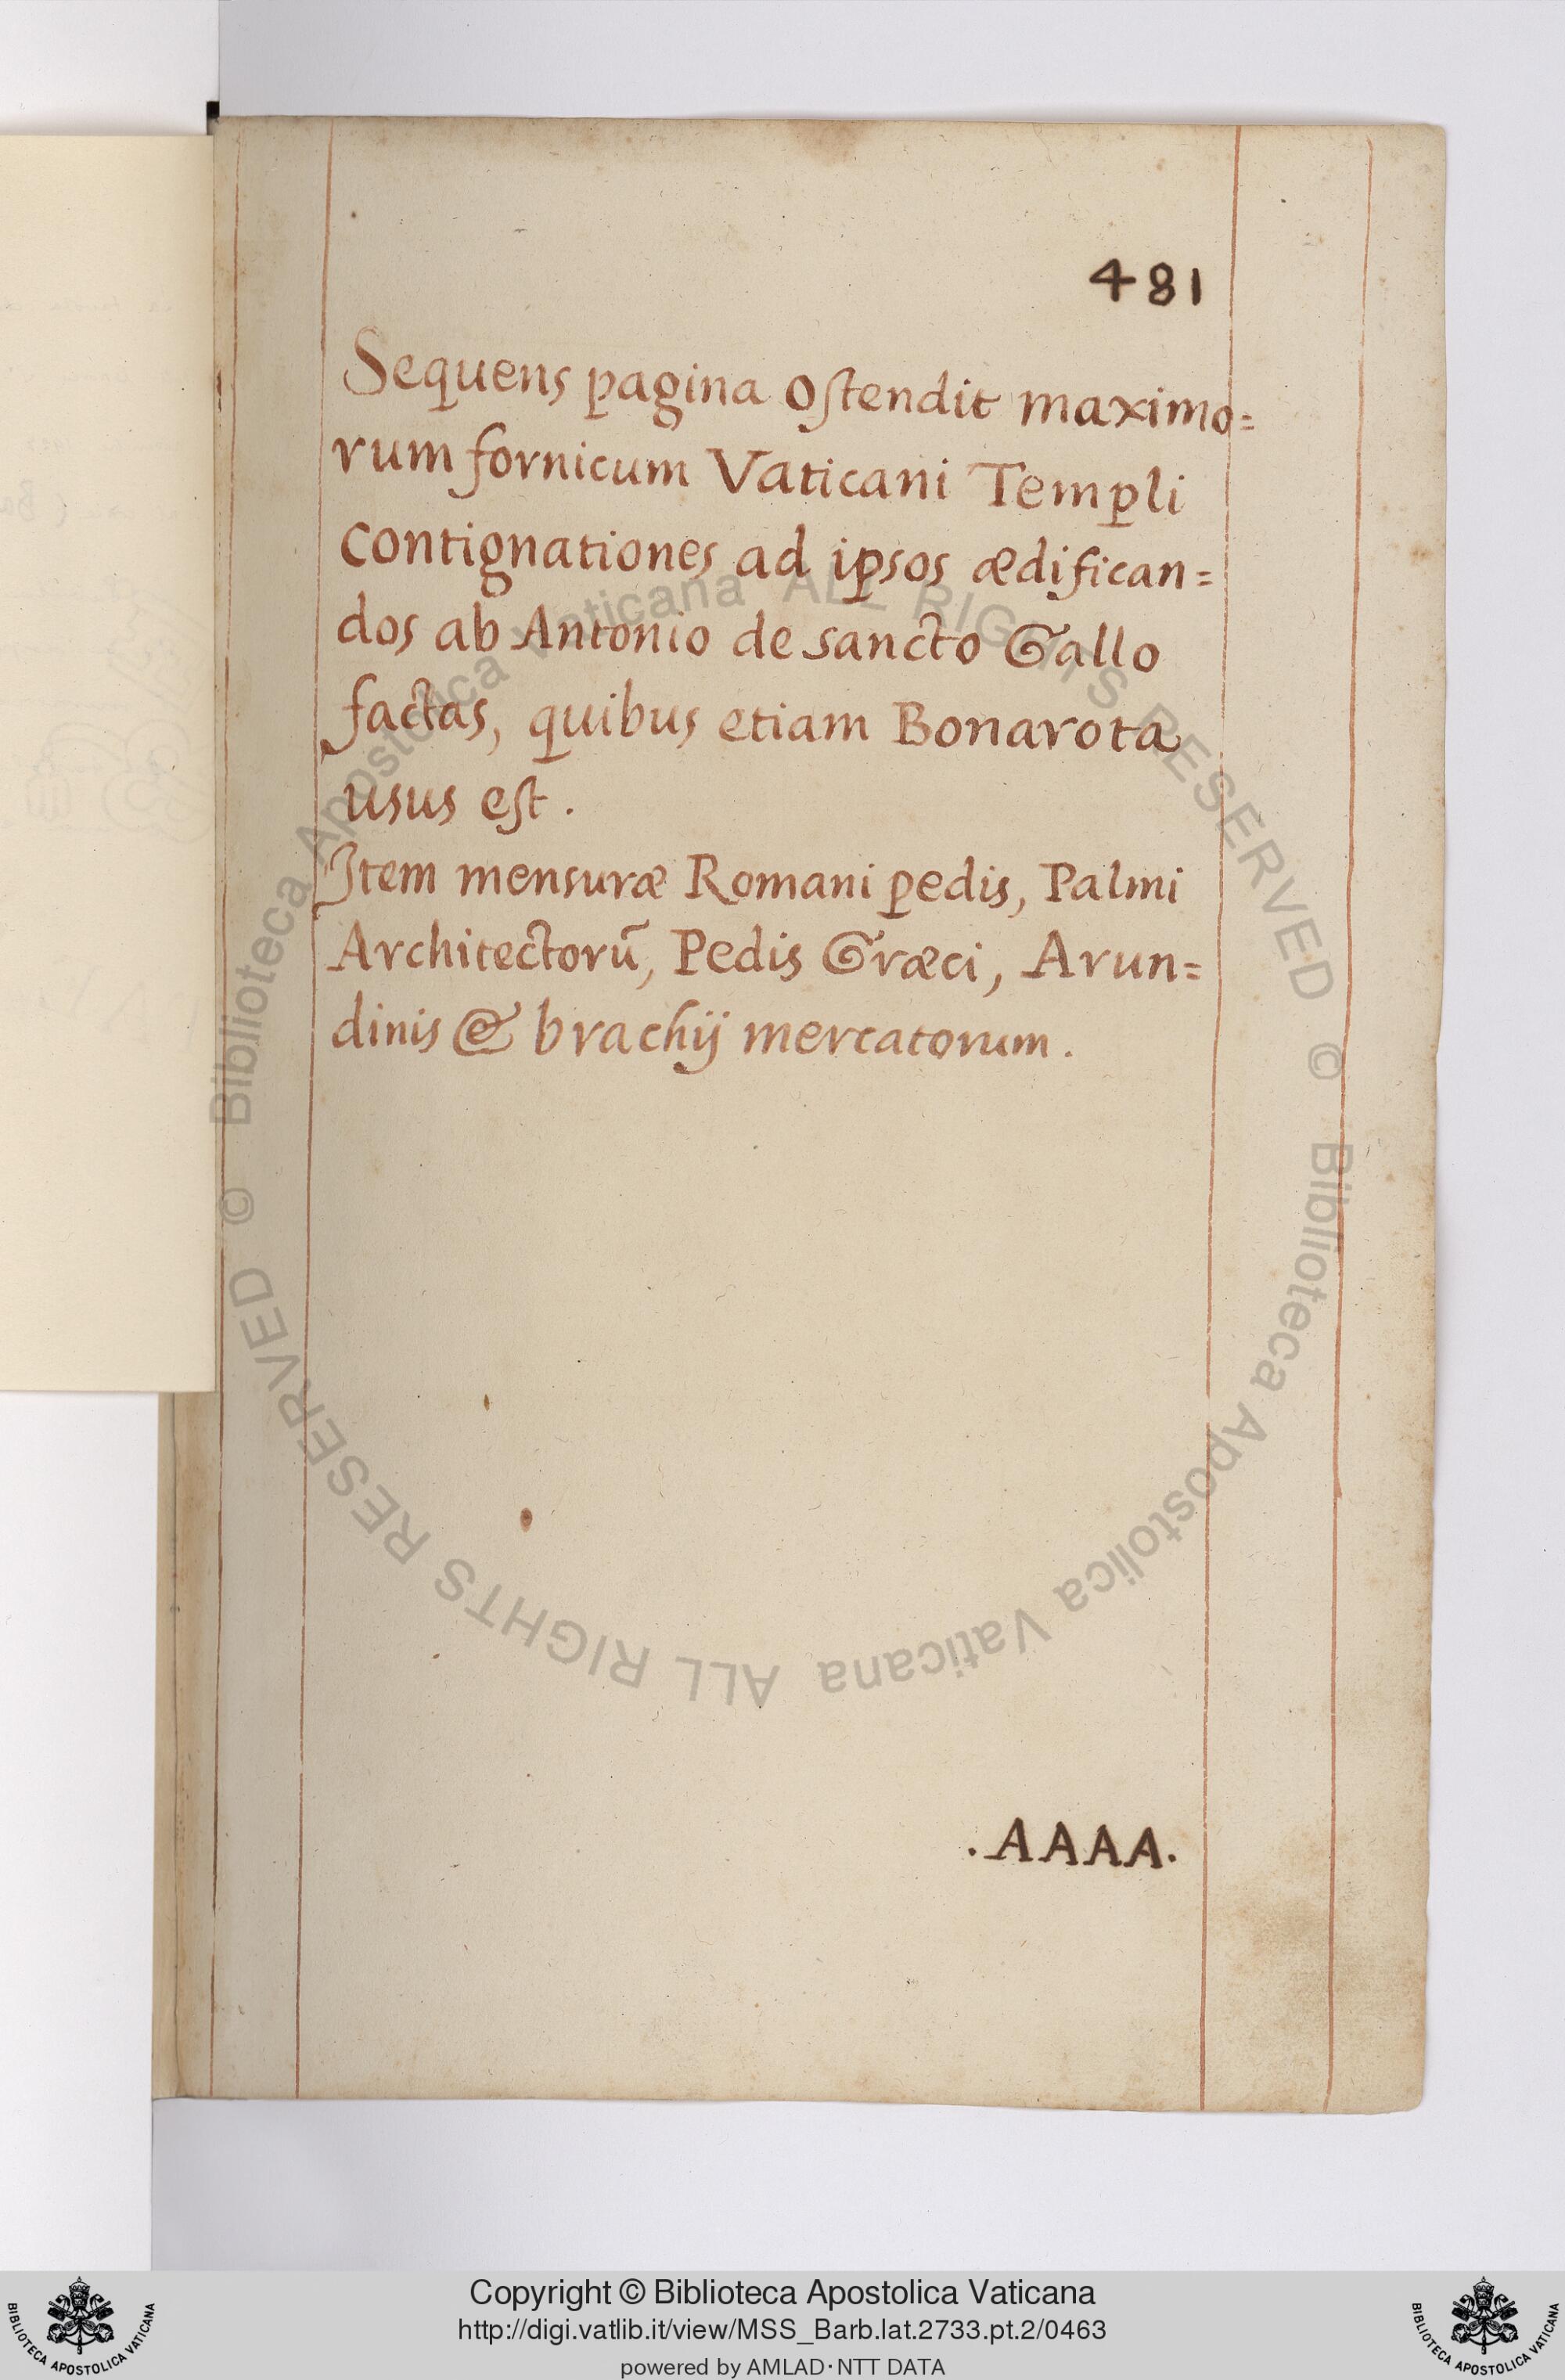 481
Sequens pagina ostendit maximo=
rum fornicum Vaticani Templi
contignationes ad ipsos ædifican=
dos ab Antonio de sancto Gallo
factas, quibus etiam Bonarota
usus est.
Item mensuræ Romani pedis, Palmi
Architectorũ, Pedis Græci, Arun=
dinis & brachij mercatorum.
.AAAA.
© Biblioteca Apostolica Vaticana ALL RIGHTS RESERVED © Biblioteca Apostolica Vaticana ALL RIGHTS RESERVED
Copyright © Biblioteca Apostolica Vaticana
http://digi.vatlib.it/view/MSS_Barb.lat.2733.pt.2/0463
powered by AMLAD·NTT DATA
BIBLIOTECA APOSTOLICA VATICANA
BIBLIOTECA APOSTOLICA VATICANA